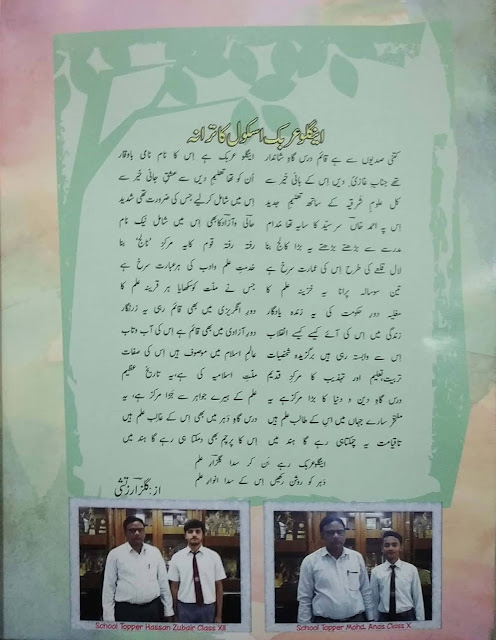 اینگلو عربک اسکول کا ترانہ
کتنی صدیوں سے ہے قائم درس گاہِ شاندار اینگلو عربک ہے اِس کا نام نامی باوقار
تھے جنابِ غازیؔ دیں اِس کے بانی خیر سے اُن کو تھا تعلیمِ دیں سے عشقِ جانی خیر سے
کل علومِ شرقیہ کے ساتھ تعلیمِ جدید اِس میں شامل کرلیے جس کی ضرورت تھی شدید
اِس پہ احمد خاں سرسیّد کا سایہ تھا مُدام حالیؔ و آزادؔ کا بھی اِس میں شامل نیک نام
مدرسے سے بڑھتے بڑھتے یہ بڑا کالج بنا رفتہ رفتہ قوم کا یہ مرکزِ 'نالج' بنا
لال قلعے کی طرح اِس کی عمارت سرخ ہے خدمتِ علم و ادب کی ہر عبارت سرخ ہے
تین سو سالہ پرانا یہ خزینہ علم کا جس نے ملّت کو سکھایا ہر قرینہ علم کا
مغلیہ دورِ حکومت کی یہ زندہ یادگار دورِ انگریزی میں بھی قائم رہی یہ زرنگار
زندگی میں اِس کی آئے کیسے کیسے انقلاب دورِ آزادی میں بھی قائم ہے اِس کی آب و تاب
اِس سے وابستہ رہی ہیں برگزیدہ شخصیات عالمِ اسلام میں موصوف ہیں اِس کی صفات
تربیت، تعلیم اور تہذیب کا مرکز قدیم ملّتِ اسلامیہ کی ہے، یہ تاریخِ عظیم
درس گاہِ دین و دنیا کا بڑا مرکز ہے یہ علم کے ہیرے جواہر سے جُڑا مرکز ہے، یہ
مفتخر سارے جہاں میں اِس کے طالب علم ہیں درس گاہِ دَہر میں بھی اِس کے غالب علم ہیں
تاقیامت یہ چمکتا ہی رہے گا ہند میں اِس کا پرچم بھی دمکتا ہی رہے گا ہند میں
اینگلو عربک رہے بَن کر سدا گلزارِ علم
دَہر کو روشن رکھیں اِس کے سدا انوارِ علم
از: گلزار زتشی
School Topper Hassan Zubair Class XII
School Topper Mohd. Anas Class X